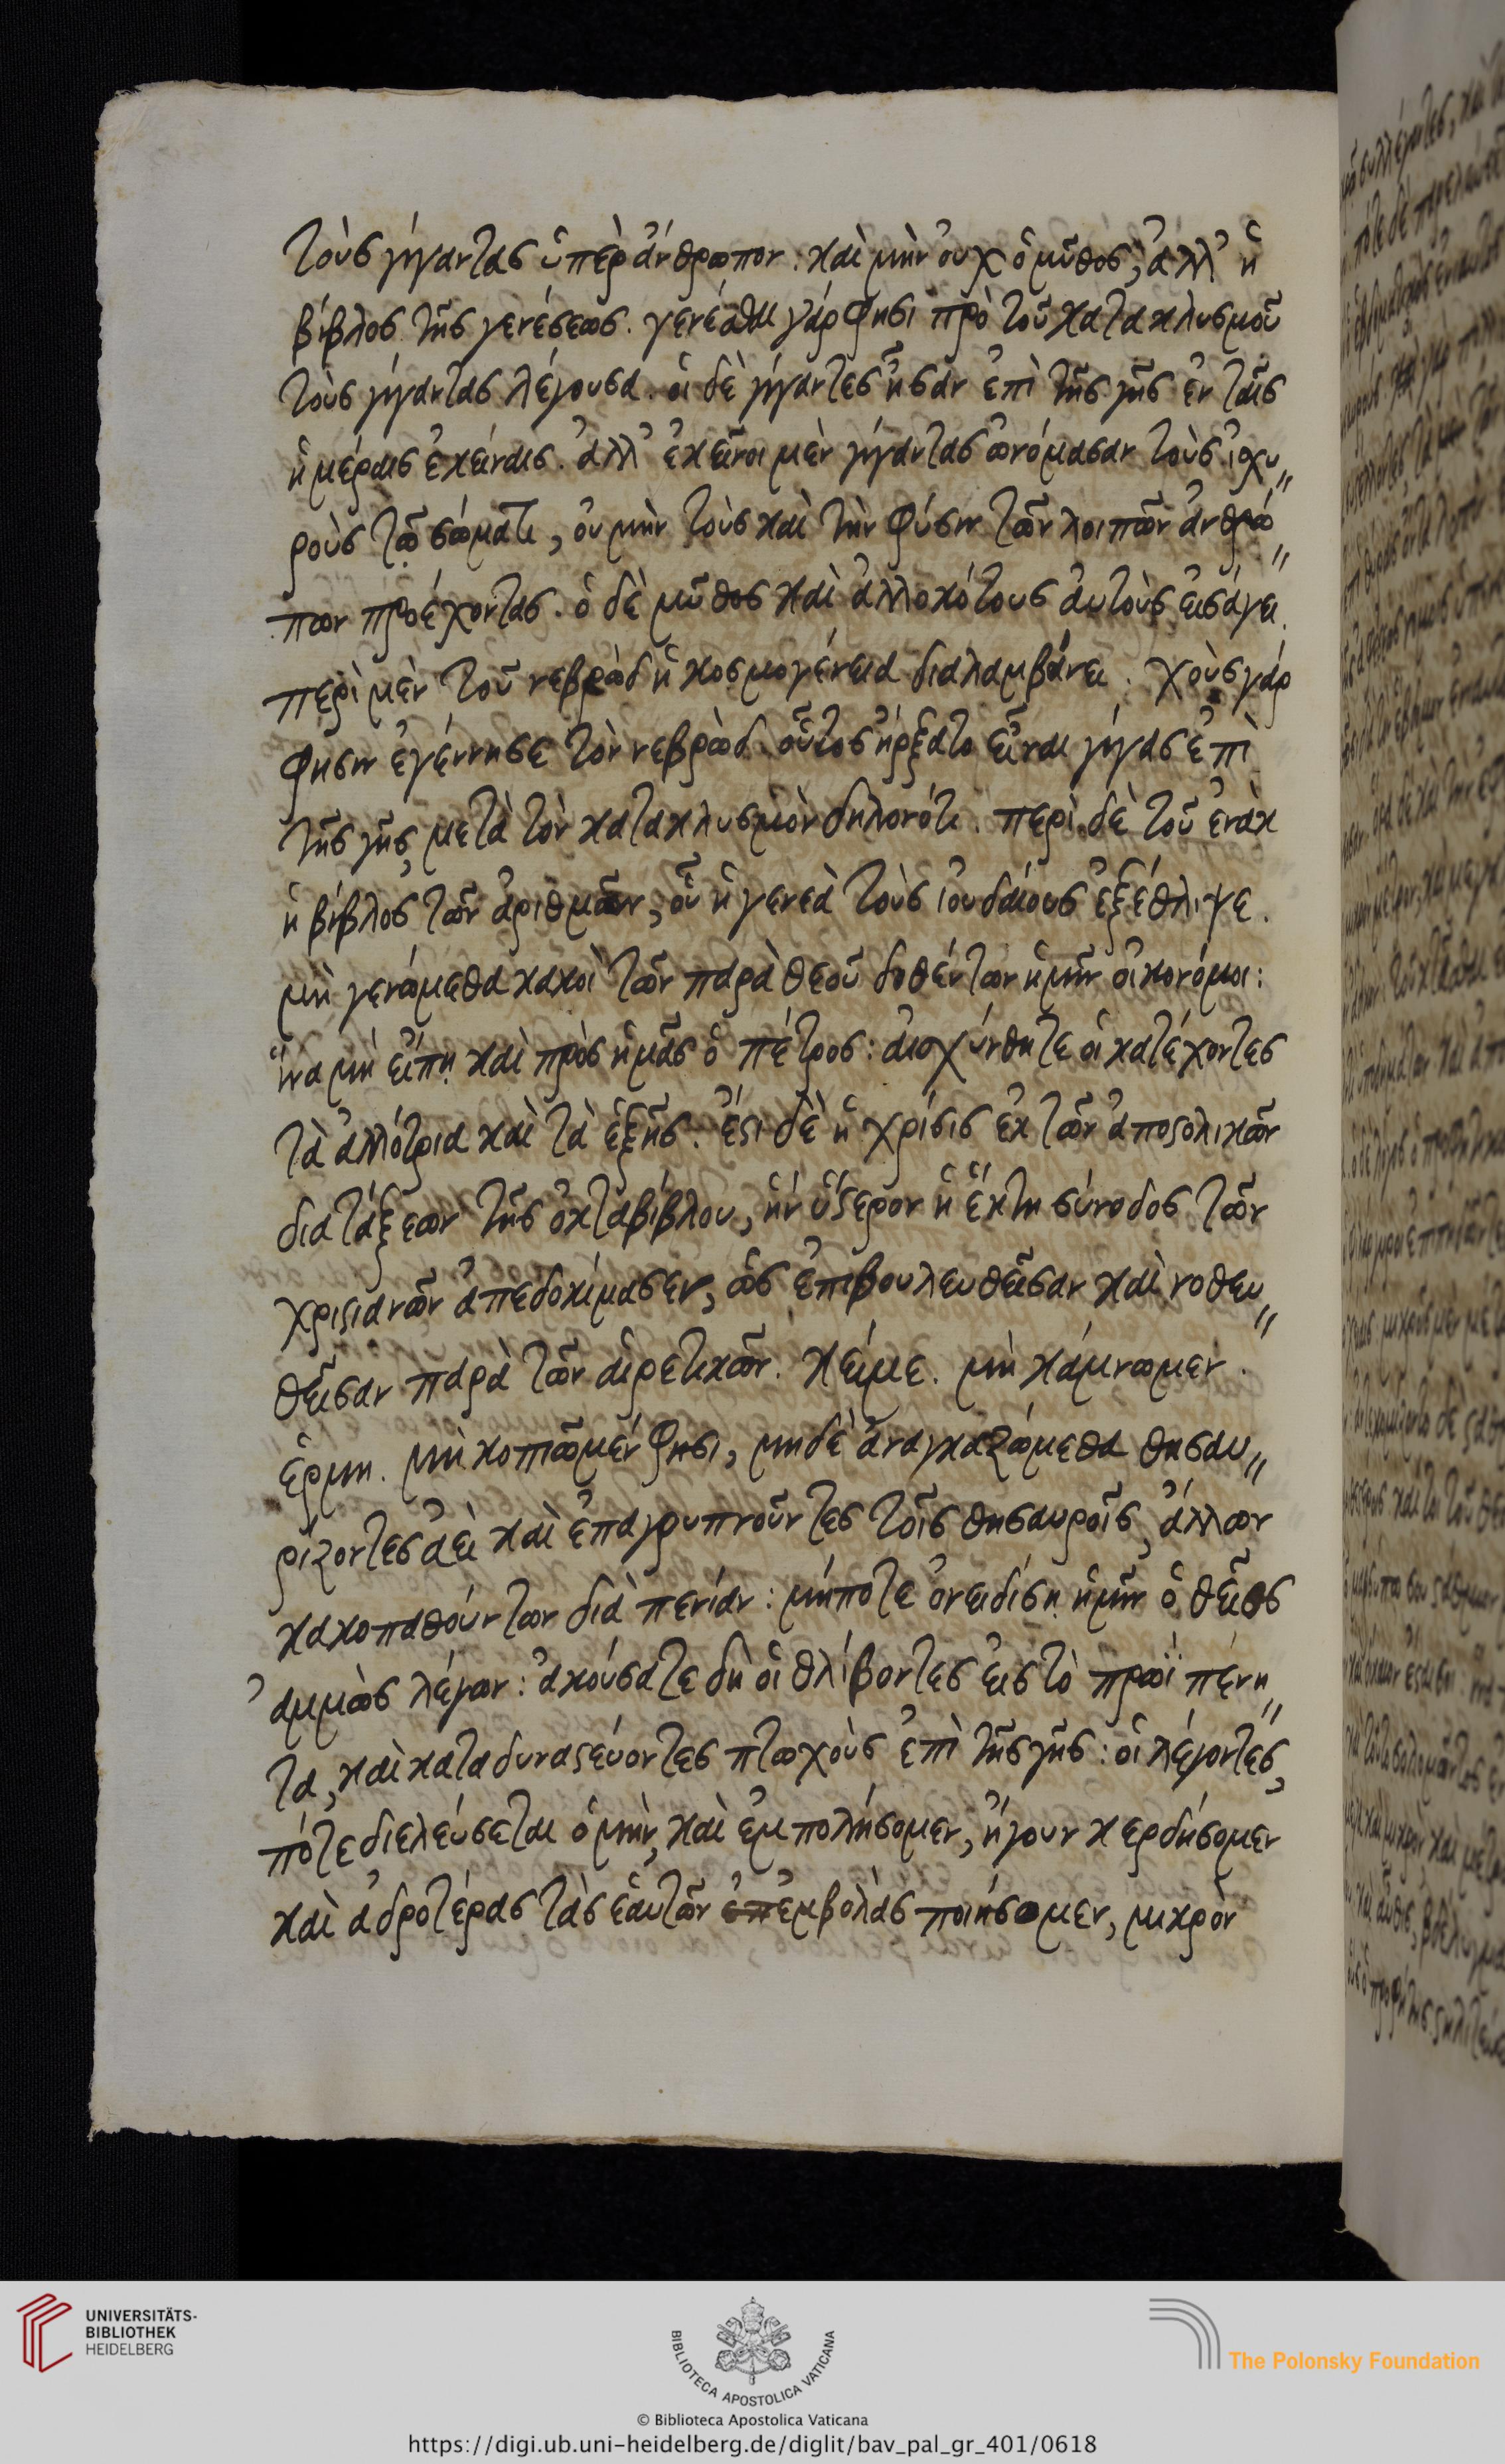 τοὺς γίγαντας ὑπὲρ ἄνθρωπον. καὶ μὴν οὐχ ὁ μῦθος, ἀλλ' ἡ
βίβλος τῆς γενέσεως. γενέσθαι γάρ φησι πρὸ τοῦ κατακλυσμοῦ
τοὺς γίγαντας λέγουσα. οἱ δὲ γίγαντες ἦσαν ἐπὶ τῆς γῆς ἐν ταῖς
ἡμέραις ἐκείναις. ἀλλ' ἐκεῖνοι μὲν γίγαντας ὠνόμασαν τοὺς ἰσχυ〃
ροὺς τῷ σώματι, οὐ μὴν τοὺς καὶ τὴν φύσιν τῶν λοιπῶν ἀνθρώ〃
πων προέχοντας. ὁ δὲ μῦθος καὶ ἀλλοκότους αὐτοὺς εἰσάγει.
περὶ μὲν τοῦ νεβρὼδ ἡ κοσμογένεια διαλαμβάνει. χοὺς γάρ
φησιν ἐγέννησε τὸν νεβρὼδ. οὗτος ἤρξατο εἶναι γίγας ἐπὶ
τῆς γῆς μετὰ τὸν κατακλυσμὸν δηλονότι. περὶ δὲ τοῦ ἐνὰκ
ἡ βίβλος τῶν ἀριθμῶν, οὗ ἡ γενεὰ τοὺς ἰουδαίους ἐξέθλιψε.
μὴ γενώμεθα κακοὶ τῶν παρὰ θεοῦ δοθέντων ἡμῖν οἰκονόμοι:
ἵνα μὴ εἴπῃ καὶ πρὸς ἡμᾶς ὁ πέτρος: αἰσχύνθητε οἱ κατέχοντες
τὰ ἀλλότρια καὶ τὰ ἑξῆς. ἔστι δὲ ἡ χρίσις ἐκ τῶν ἀποστολικῶν
διατάξεων τῆς ὀκταβίβλου, ἣν ὕστερον ἡ ἕκτη σύνοδος τῶν
χριστιανῶν ἀπεδοκίμασεν, ὡς ἐπιβουλευθεῖσαν καὶ νοθευ〃
θεῖσαν παρὰ τῶν αἱρετικῶν. κείμε. μὴ κάμνωμεν.
ἑρμη. μὴ κοπιῶμέν φησι, μηδὲ ἀναγκαζώμεθα θησαυ〃
ρίζοντες ἀεὶ καὶ ἐπαγρυπνοῦντες τοῖς θησαυροῖς, ἄλλων
κακοπαθούντων διὰ πενίαν: μήποτε ὀνειδίσῃ ἡμῖν ὁ θεῖος
ἀμμὼς λέγων: ἀκούσατε δὴ οἱ θλίβοντες εἰς τὸ πρωῒ πένη〃
τα, καὶ καταδυναστεύοντες πτωχοὺς ἐπὶ τῆς γῆς: οἱ λέγοντες,
πότε διελεύσεται ὁ μὴν, καὶ ἐμπολήσομεν, ἤγουν κερδήσομεν
καὶ ἁδροτέρας τὰς ἑαυτῶν ἐμβολὰς ποιήσομεν, μικρὸν
UNIVERSITÄTS-
BIBLIOTHEK
HEIDELBERG
BIBLIOTECA APOSTOLICA VATICANA
The Polonsky Foundation
© Biblioteca Apostolica Vaticana
https://digi.ub.uni-heidelberg.de/diglit/bav_pal_gr_401/0618